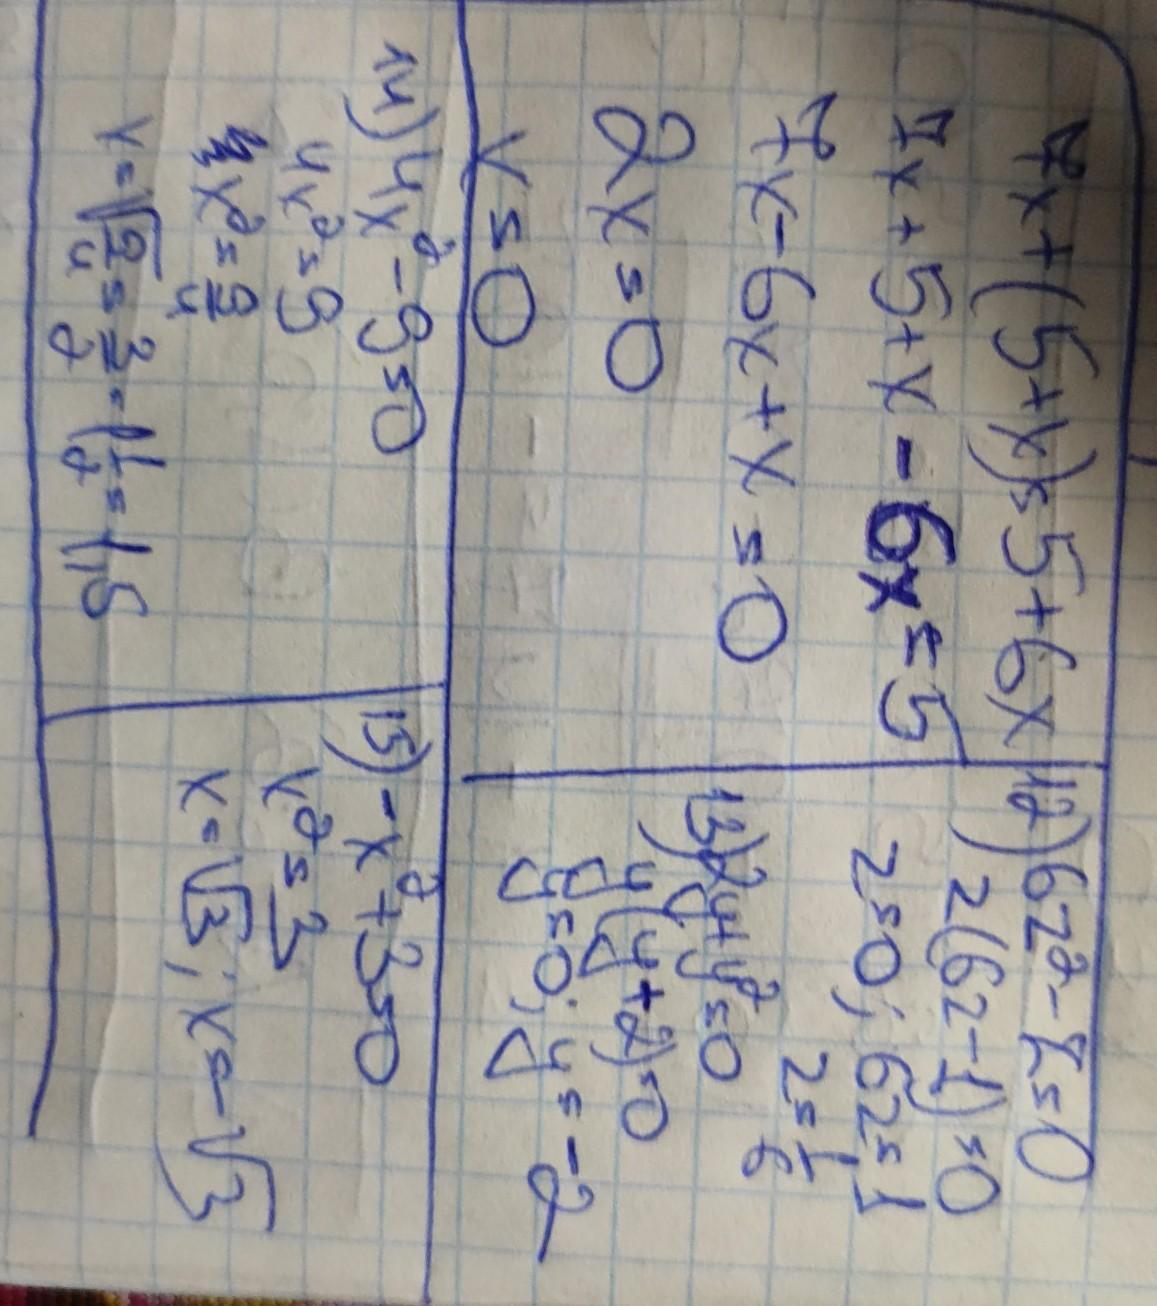 7x+(5+x)=5+6x
7x+5+x-6x=5
7x-6x+x=0
2x=0
x=0
12) 6z²-z=0
z(6z-1)=0
z=0; 6z=1
z=1/6
13) 2y+y²=0
y(y+2)=0
y=0; y=-2
14) 4x²-9=0
4x²=9
x²=9/4
x=√9/4=3/2=1 1/2=1,5
15) -x²+3=0
x²=3
x=√3; x=-√3